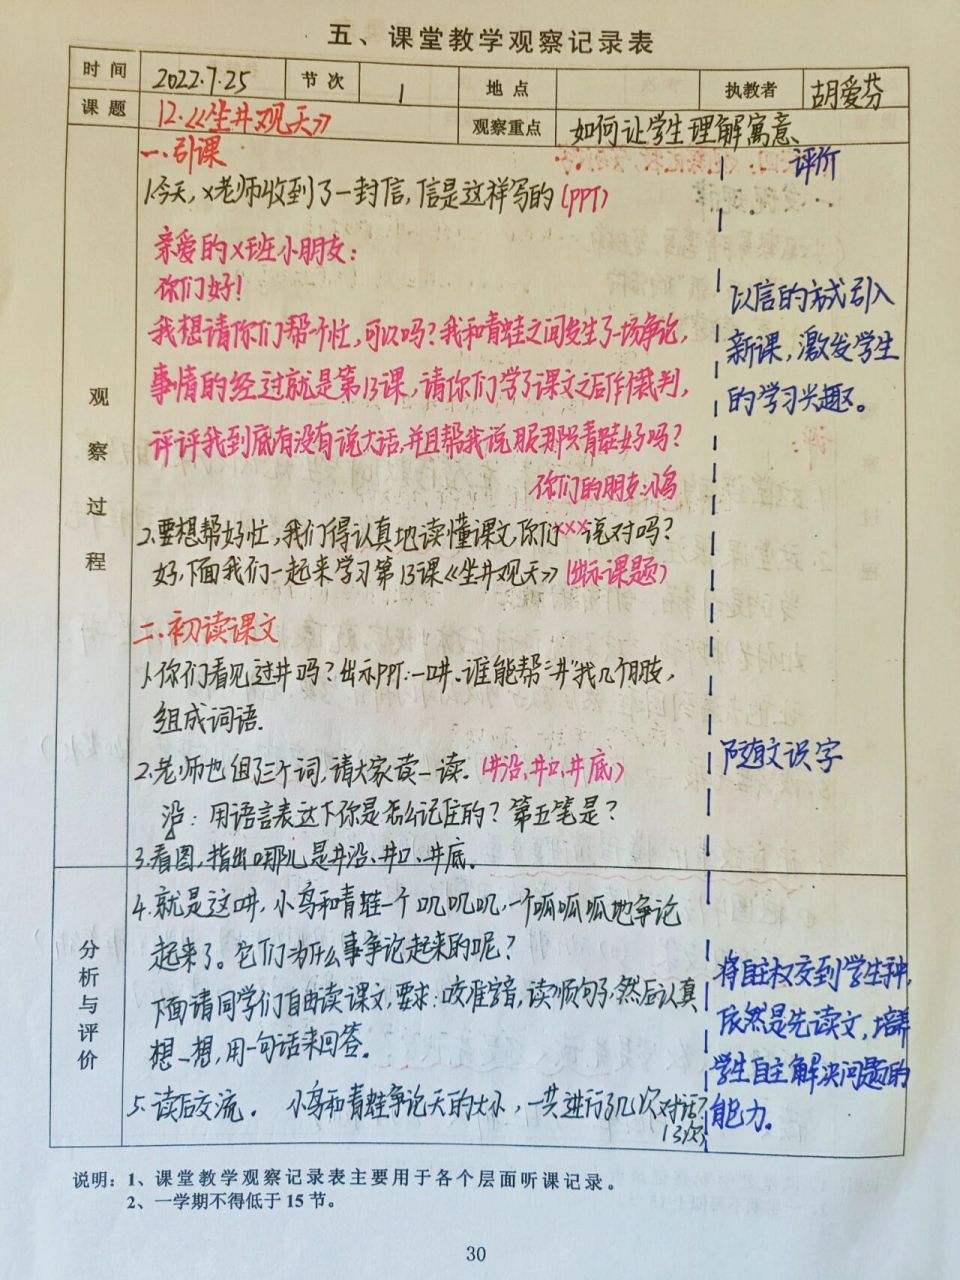 五、课堂教学观察记录表
时间 2022.7.25 节次 1 地点 执教者 胡爱芬
课题 12.《坐井观天》 观察重点 如何让学生理解寓意
一.引课
评价
1.今天,x老师收到了一封信,信是这样写的(PPT)
亲爱的x班小朋友:
你们好!
我想请你们帮个忙,可以吗?我和青蛙之间发生了一场争论,
事情的经过就是第13课,请你们学了课文之后作裁判,
评评我到底有没有说大话,并且帮我说服那只青蛙好吗?
你们的朋友:小鸟
以信的方式引入
新课,激发学生
的学习兴趣。
2.要想帮好忙,我们得认真地读懂课文,你们xxx说对吗?
好,下面我们一起来学习第13课《坐井观天》(出示课题)
二.初读课文
1.你们看见过井吗?出示PPT:一口井.谁能帮"井"找几个朋友,
组成词语.
2.老师也组了三个词,请大家读一读.(井沿、井口、井底)
沿:用语言表达下你是怎么记住的?第五笔是?
3.看图,指出哪儿是井沿、井口、井底.
随文识字
观察过程
4.就是这口井,小鸟和青蛙一个叽叽叽,一个呱呱呱地争论
起来了。它们为什么事争论起来的呢?
下面请同学们自由读课文,要求:咬准字音,读顺句子,然后认真
想一想,用一句话来回答。
5.读后交流。小鸟和青蛙争论天的大小,一共进行了几次对话?
13次
将自主权交到学生手中,
依然是先读文,培养
学生自主解决问题的
能力。
分析与评价
说明:1、课堂教学观察记录表主要用于各个层面听课记录。
2、一学期不得低于15节。
30